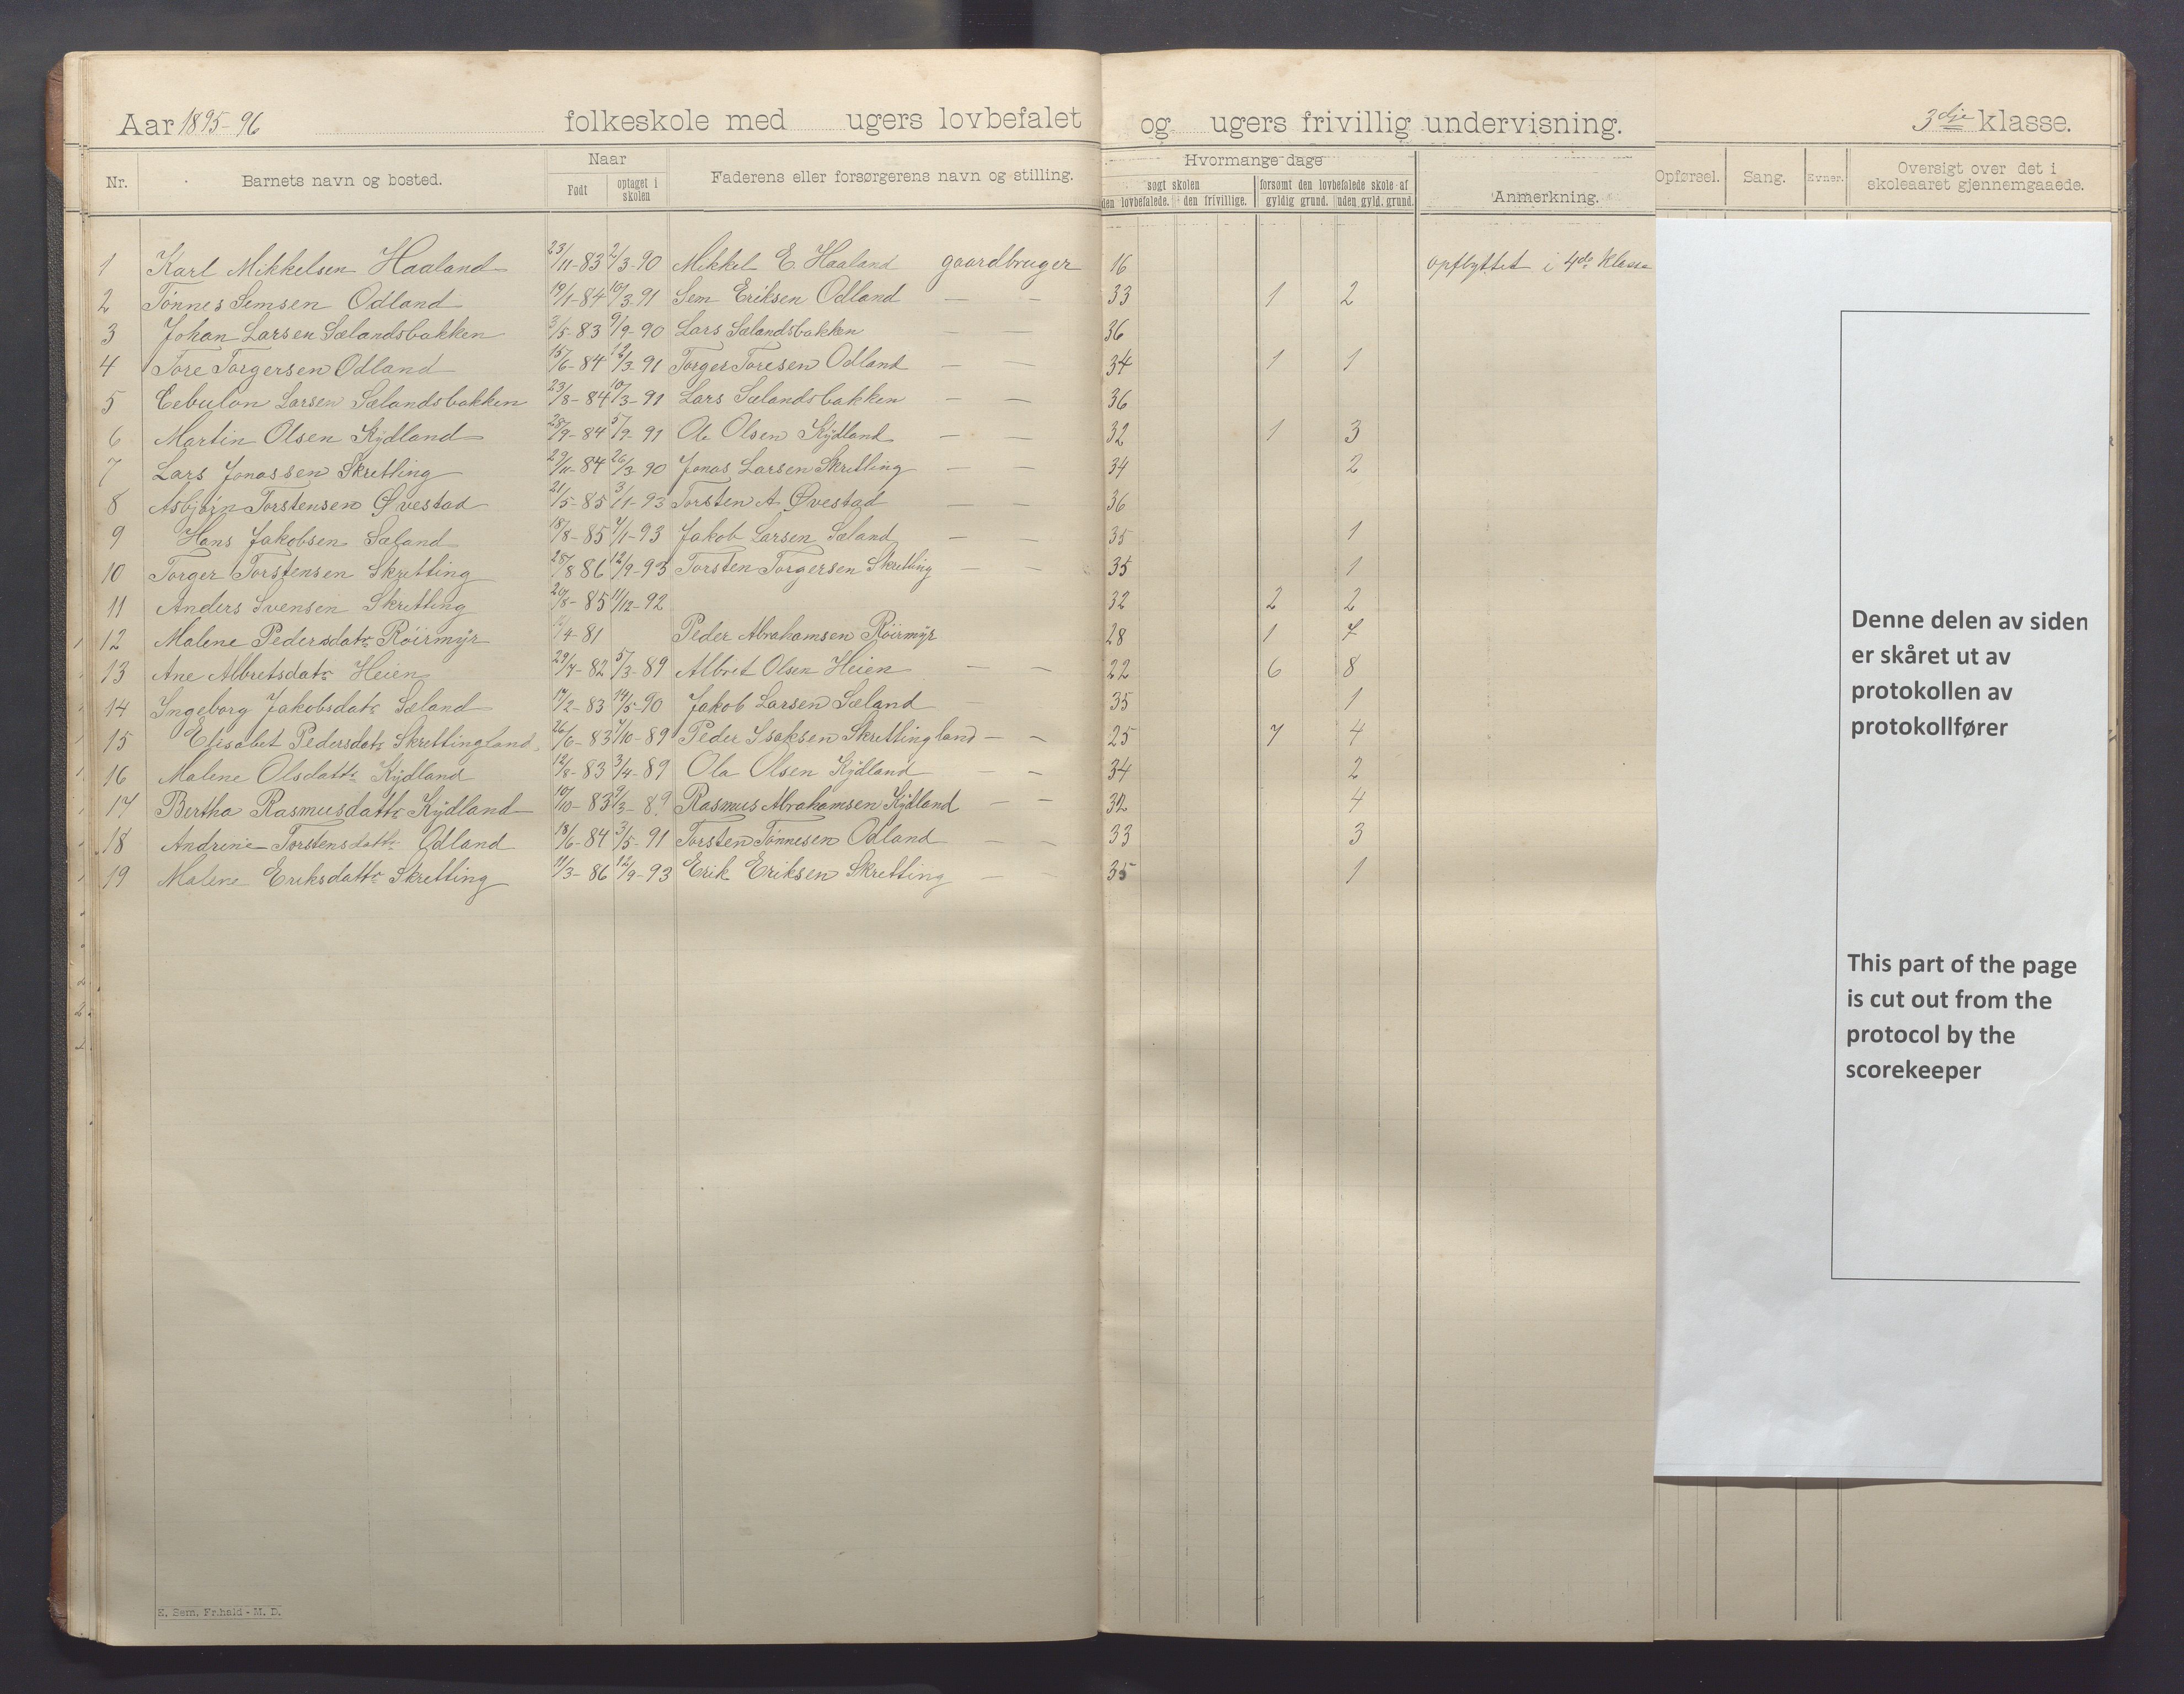 Aar 1895-96 folkeskole med ugers lovbefalet og ugers frivillig undervisning. 3dje klasse.
Nr. Barnets navn og bosted. Naar Født optaget i skolen Faderens eller forsørgerens navn og stilling. Hvormange dage søgt skolen den lovbefalede. den frivillige. forsømt den lovbefalede skole af gyldig grund. uden gyld. grund. Anmerkning. Opførsel. Sang. Evner. Oversigt over det i skoleaaret gjennemgaaede.
1 Karl Mikkelsen Haaland 23/11-83 2/3-90 Mikkel E. Haaland gaardbruger 16 opflyttet i 4de Klasse
2 Tønnes Semsen Odland 19/1-84 10/3-91 Sem Eriksen Odland — — 33 1 2
3 Johan Larsen Sælandsbakken 3/5-83 9/9-90 Lars Sælandsbakken — — 36
4 Tore Torgersen Odland 15/6-84 12/3-91 Torger Toresen Odland — — 34 1 1
5 Cebulon Larsen Sælandsbakken 23/8-84 10/3-91 Lars Sælandsbakken — — 36
6 Martin Olsen Kydland 28/9-84 5/9-91 Ole Olsen Kydland — — 32 1 3
7 Lars Jonassen Skretting 29/11-84 26/3-90 Jonas Larsen Skretting — — 34 2
8 Asbjørn Torstensen Øvestad 21/5-85 3/11-93 Torsten A. Øvestad — — 36
9 Hans Jakobsen Sæland 18/8-85 4/1-93 Jakob Larsen Sæland — — 35 1
10 Torger Torstensen Skretting 28/8 86 12/9-93 Torsten Torgersen Skretting — — 35 1
11 Anders Svensen Skretting 20/8-85 11/12-92 32 2 2
12 Malene Pedersdatr Röirmyr /4-81 Peder Abrahamsen Röirmyr 28 1 7
13 Ane Albretsdatr Heien 29/7-82 5/3-89 Albret Olsen Heien — — 22 6 8
14 Ingeborg Jakobsdatr Sæland 17/2-83 14/5-90 Jakob Larsen Sæland — 35 1
15 Elisabet Pedersdatr Skrettingland 26/6-83 7/10-89 Peder Isaksen Skrettingland — — 25 7 4
16 Malene Olsdattr Kydland 12/8-83 3/4-89 Ola Olsen Kydland — — 34 2
17 Bertha Rasmusdattr Kydland 10/10-83 9/3-89 Rasmus Abrahamsen Kydland — — 32 4
18 Andrine Torstensdattr Odland 18/6-84 3/5-91 Torsten Tönnesen Odland — — 33 3
19 Malene Eriksdattr Skretting 11/3-86 12/9-93 Erik Eriksen Skretting — — 35 1
E. Sem, Fr.hald - M. D.
Denne delen av siden
er skåret ut av
protokollen av
protokollfører
This part of the page
is cut out from the
protocol by the
scorekeeper